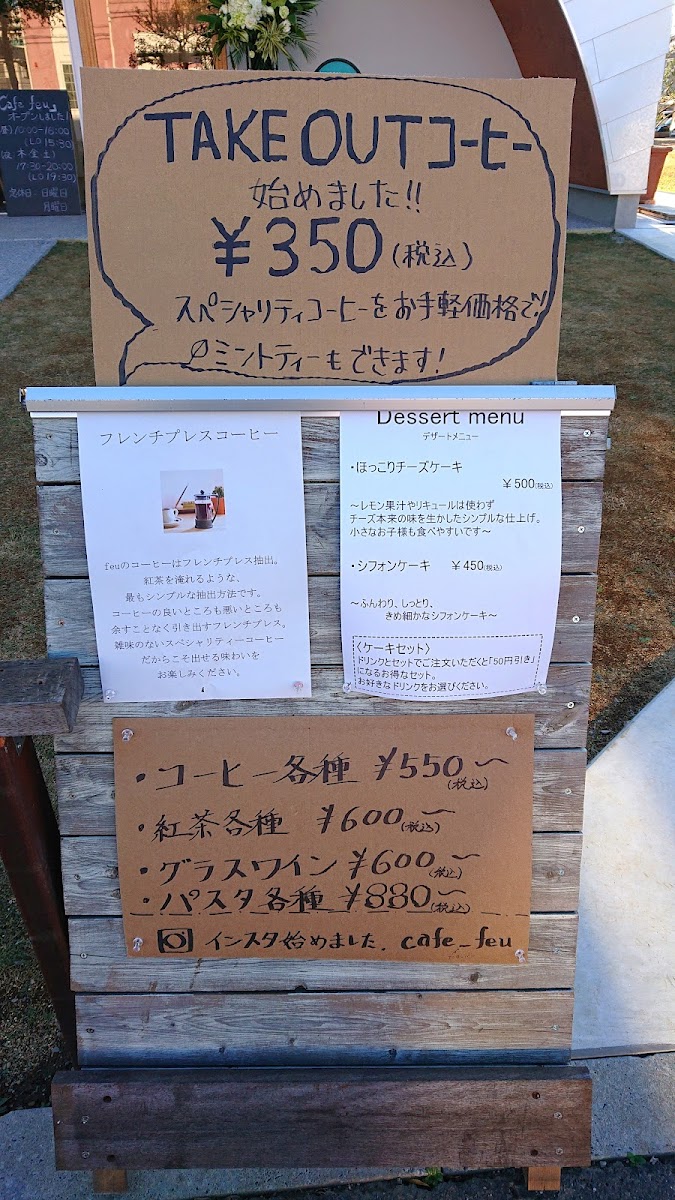 Cafe feu
オープンしました!
(昼)10:00-16:00
(LO 15:30)
(夜 木金土)
17:30-20:00
(LO 19:30)
定休日:日曜日
月曜日
TAKE OUTコーヒー
始めました!!
¥350(税込)
スペシャリティコーヒーをお手軽価格で!
ミントティーもできます!
フレンチプレスコーヒー
feuのコーヒーはフレンチプレス抽出。
紅茶を淹れるような、
最もシンプルな抽出方法です。
コーヒーの良いところも悪いところも
余すことなく引き出すフレンチプレス。
雑味のないスペシャリティーコーヒー
だからこそ出せる味わいを
お楽しみください。
Dessert menu
デザートメニュー
・ほっこりチーズケーキ
¥500(税込)
~レモン果汁やリキュールは使わず
チーズ本来の味を生かしたシンプルな仕上げ。
小さなお子様も食べやすいです~
・シフォンケーキ ¥450(税込)
~ふんわり、しっとり、
きめ細かなシフォンケーキ~
〈ケーキセット〉
ドリンクとセットでご注文いただくと「50円引き」
になるお得なセット。
お好きなドリンクをお選びください。
・コーヒー各種 ¥550~(税込)
・紅茶各種 ¥600~(税込)
・グラスワイン ¥600~(税込)
・パスタ各種 ¥880~(税込)
インスタ始めました. cafe_feu